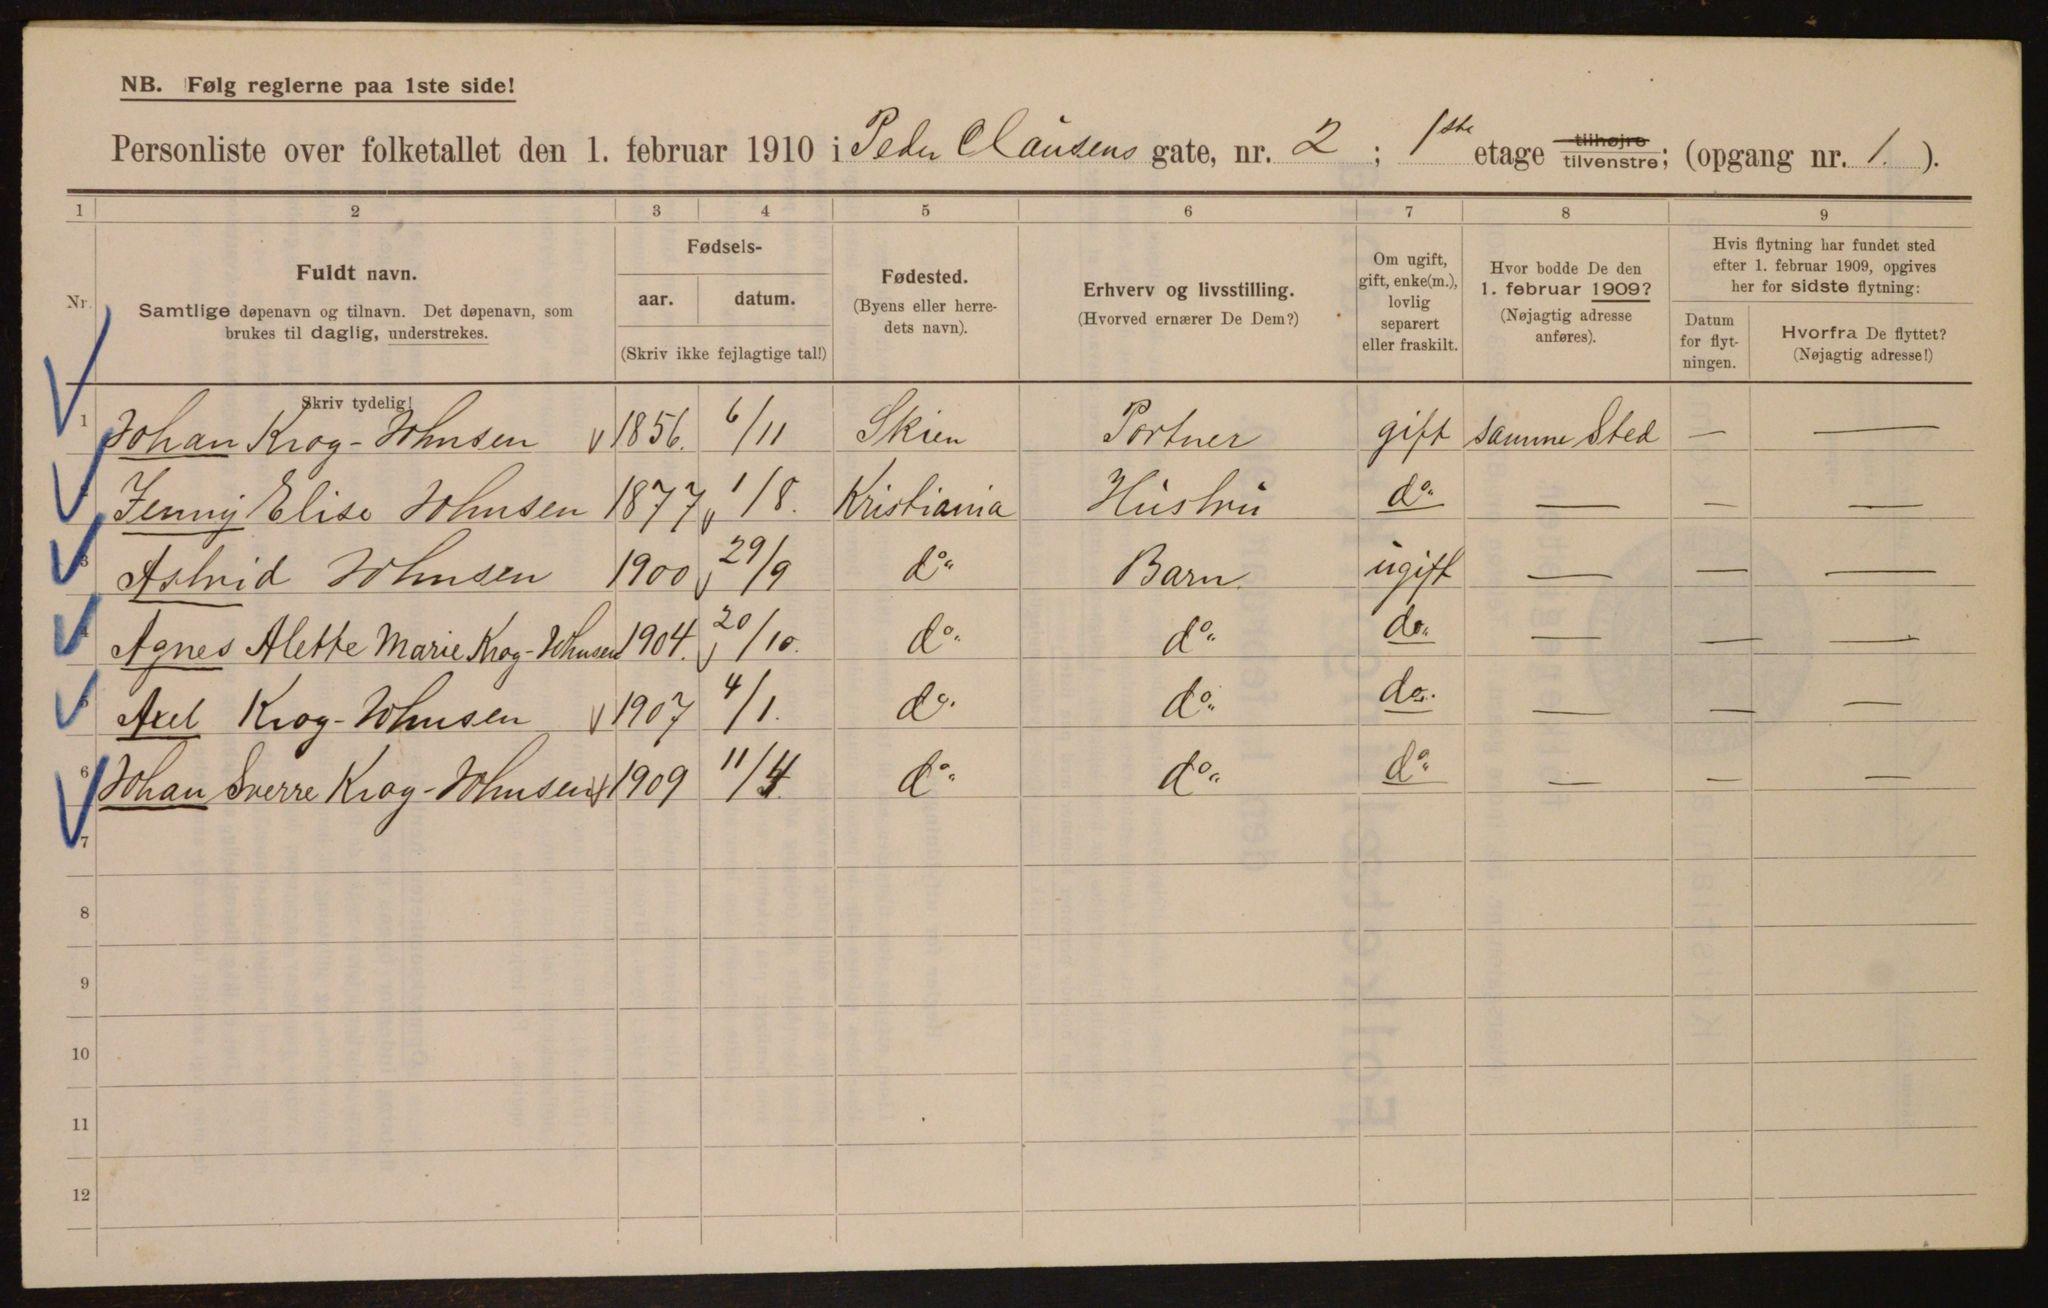 NB. Følg reglerne paa 1ste side!
Personliste over folketallet den 1. februar 1910 i Peder Claùsens gate, nr. 2 ; 1ste etage tilhøjre tilvenstre; (opgang nr. 1. ).
1 2 3 4 5 6 7 8 9
Nr.
Fuldt navn.
Samtlige døpenavn og tilnavn. Det døpenavn, som
brukes til daglig, understrekes.
Skriv tydelig!
Fødsels-
aar. datum.
(Skriv ikke fejlagtige tal!)
Fødested.
(Byens eller herre-
dets navn).
Erhverv og livsstilling.
(Hvorved ernærer De Dem?)
Om ugift,
gift, enke(m.),
lovlig
separert
eller fraskilt.
Hvor bodde De den
1. februar 1909?
(Nøjagtig adresse
anføres).
Hvis flytning har fundet sted
efter 1. februar 1909, opgives
her for sidste flytning:
Datum
for flyt-
ningen.
Hvorfra De flyttet?
(Nøjagtig adresse!)
1 Johan Krog-Johnsen 1856. 6/11 Skien Portner gift samme Sted — —
Jenny Elise Johnsen 1877 1/8. Kristiania Hùstrù do — — —
3 Astrid Johnsen 1900 29/9 do Barn ùgift — — —
4 Agnes Alette Marie Krog-Johnsen 1904. 20/10. do do do — — —
5 Axel Krog-Johnsen 1907 4/1. do do do. — — —
6 Johan Sverre Krog-Johnsen 1909 11/4. do do do — — —
7
8
9
10
11
12